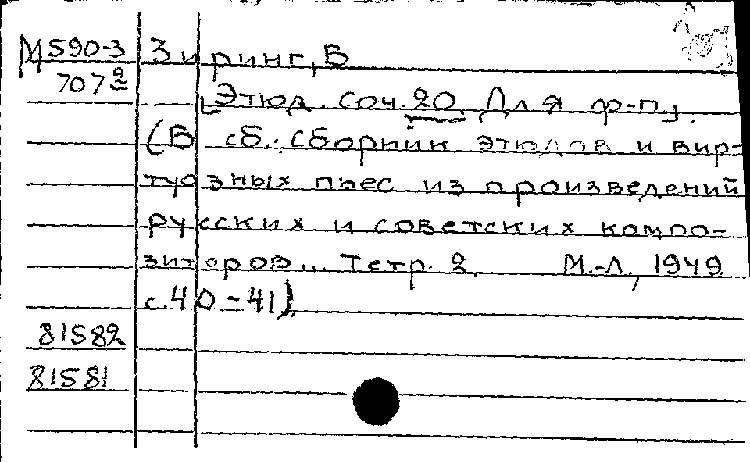 М590-3 Зиринг, В
707² [Этюд. Соч. 20. Для ф-п].
(В сб.: Сборник этюдов и вир-
туозных пьес из произведений
русских и советских компо-
зиторов... Тетр. 2. М.-Л., 1949
с. 40-41).
81582
81581